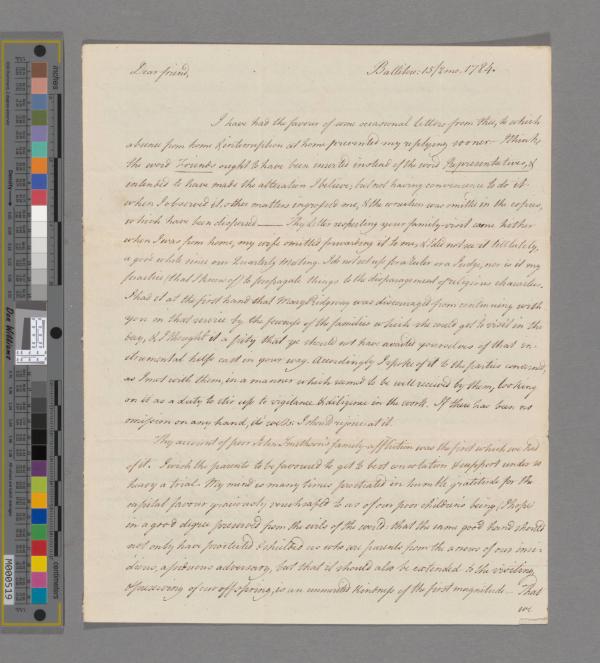 Dear friend, Ballitore: 15/2mo. 1784.
I have had the favour of some occasional letters from thee, to which
absence from home & interruption at home prevented my replying sooner. I think,
the word Friends ought to have been inserted instead of the word Representatives, &
intended to have made the alteration I believe, but not having convenience to do it
when I observed it, other matters ingrossed me, & the correction was omitted in the copies,
which have been dispersed — Thy letter respecting your family-visit came hether
when I was from home, my wife omitted forwarding it to me, & I did not see it till lately,
a good while since our Quarterly Meeting. I do not set up for a Ruler or a Judge, nor is it my
practice (that I know of) to propagate things to the disparagement of religious characters.
I had it at the first hand that Mary Ridgway was discouraged from continuing with
you on that service by the fewness of the families which she could get to visit in the
day, & I thought it a pity that ye should not have availed yourselves of that in-
strumental help cast in your way. Accordingly I spoke of it to the parties concerned,
as I met with them, in a manner which seemed to be well received by them, looking
on it as a duty to stir up to vigilance & diligence in the work. If there has been no
omission on any hand, it's well: I should rejoice at it.
Thy account of poor John family-affliction was the first which we had
of it. I wish the parents to be favoured to get to best consolation & support under so
heavy a trial. My mind is many times prostrated in humble gratitude for the
capital favour graciously vouchsafed to us of our poor children's being, I hope
in a good degree preserved from the evils of the world: that the same good hand should
not only have protected & shielded us who are parents from the snares of our insi-
dious, assiduous adversary, but that it should also be extended to the visiting
& preserving of our offspring, is an unmerited kindness of the first magnitude — That
we
inches
centimeters
Don Williams
M000519